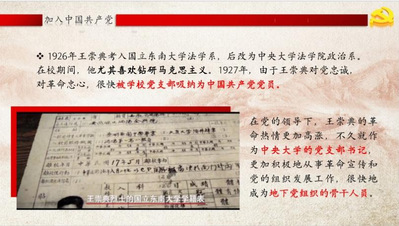 加入中国共产党
◆ 1926年王崇典考入国立东南大学法学系，后改为中央大学法学院政治系。
在校期间，他尤其喜欢钻研马克思主义。1927年，由于王崇典对党忠诚，
对革命忠心，很快被学校党支部吸纳为中国共产党党员。
在党的领导下，王崇典的革
命热情更加高涨，不久就作
为中央大学的党支部书记，
更加积极地从事革命宣传和
党的组织发展工作，很快地
成为地下党组织的骨干人员。
王崇典烈士的国立东南大学学籍表